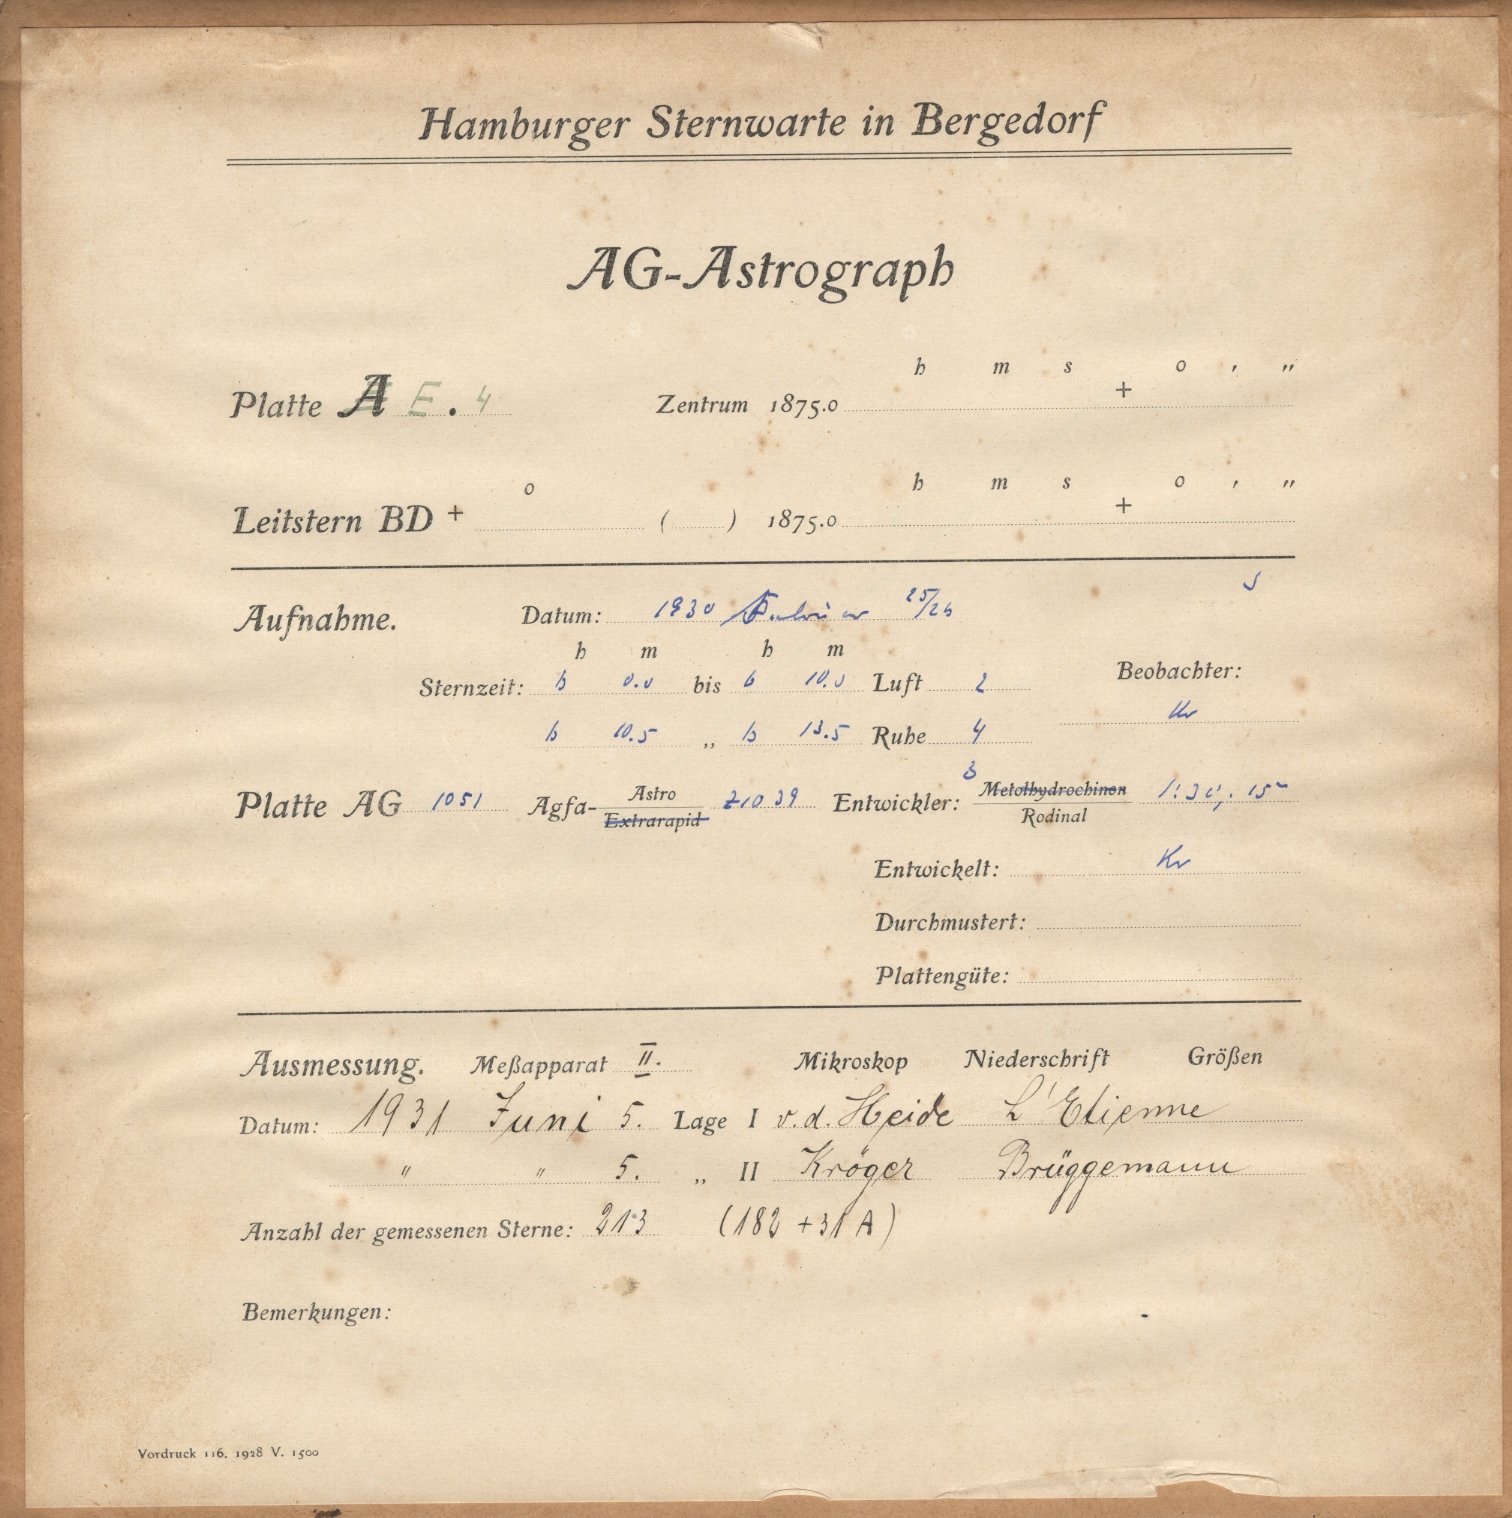 Hamburger Sternwarte in Bergedorf
AG-Astrograph
h m s o ′ ″
Platte A E . 4 Zentrum 1875.0 +
o h m s o ′ ″
Leitstern BD + ( ) 1875.0 +
Aufnahme. Datum: 1930 Februar 25/26
h m h m
Sternzeit: 6 0.0 bis 6 10.0 Luft 2 Beobachter:
Kr
6 10.5 „ 6 13.5 Ruhe 4
Platte AG 1051 Agfa- Astro Z1039 Entwickler: Metolhydrochinon 1:30, 15
Extrarapid Rodinal
Entwickelt: Kr
Durchmustert:
Plattengüte:
Ausmessung. Meßapparat II. Mikroskop Niederschrift Größen
Datum: 1931 Juni 5. Lage I v.d. Heide L'Etienne
" " 5. „ II Kröger Brüggemann
Anzahl der gemessenen Sterne: 213 (182 + 31 A)
Bemerkungen:
Vordruck 116. 1928 V. 1500